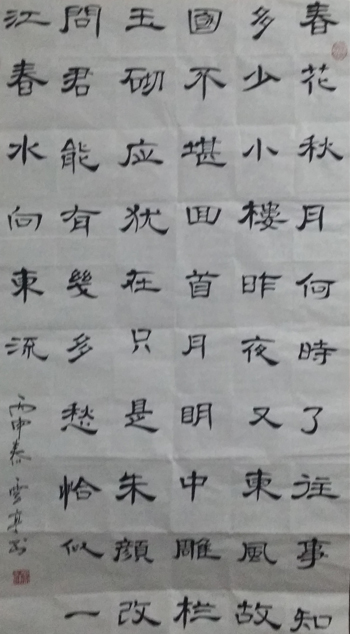 春花秋月何時了往事知
多少小樓昨夜又東風故
國不堪回首月明中雕栏
玉砌应犹在只是朱顔改
問君能有幾多愁恰似一
江春水向東流
丙申春雲亭书